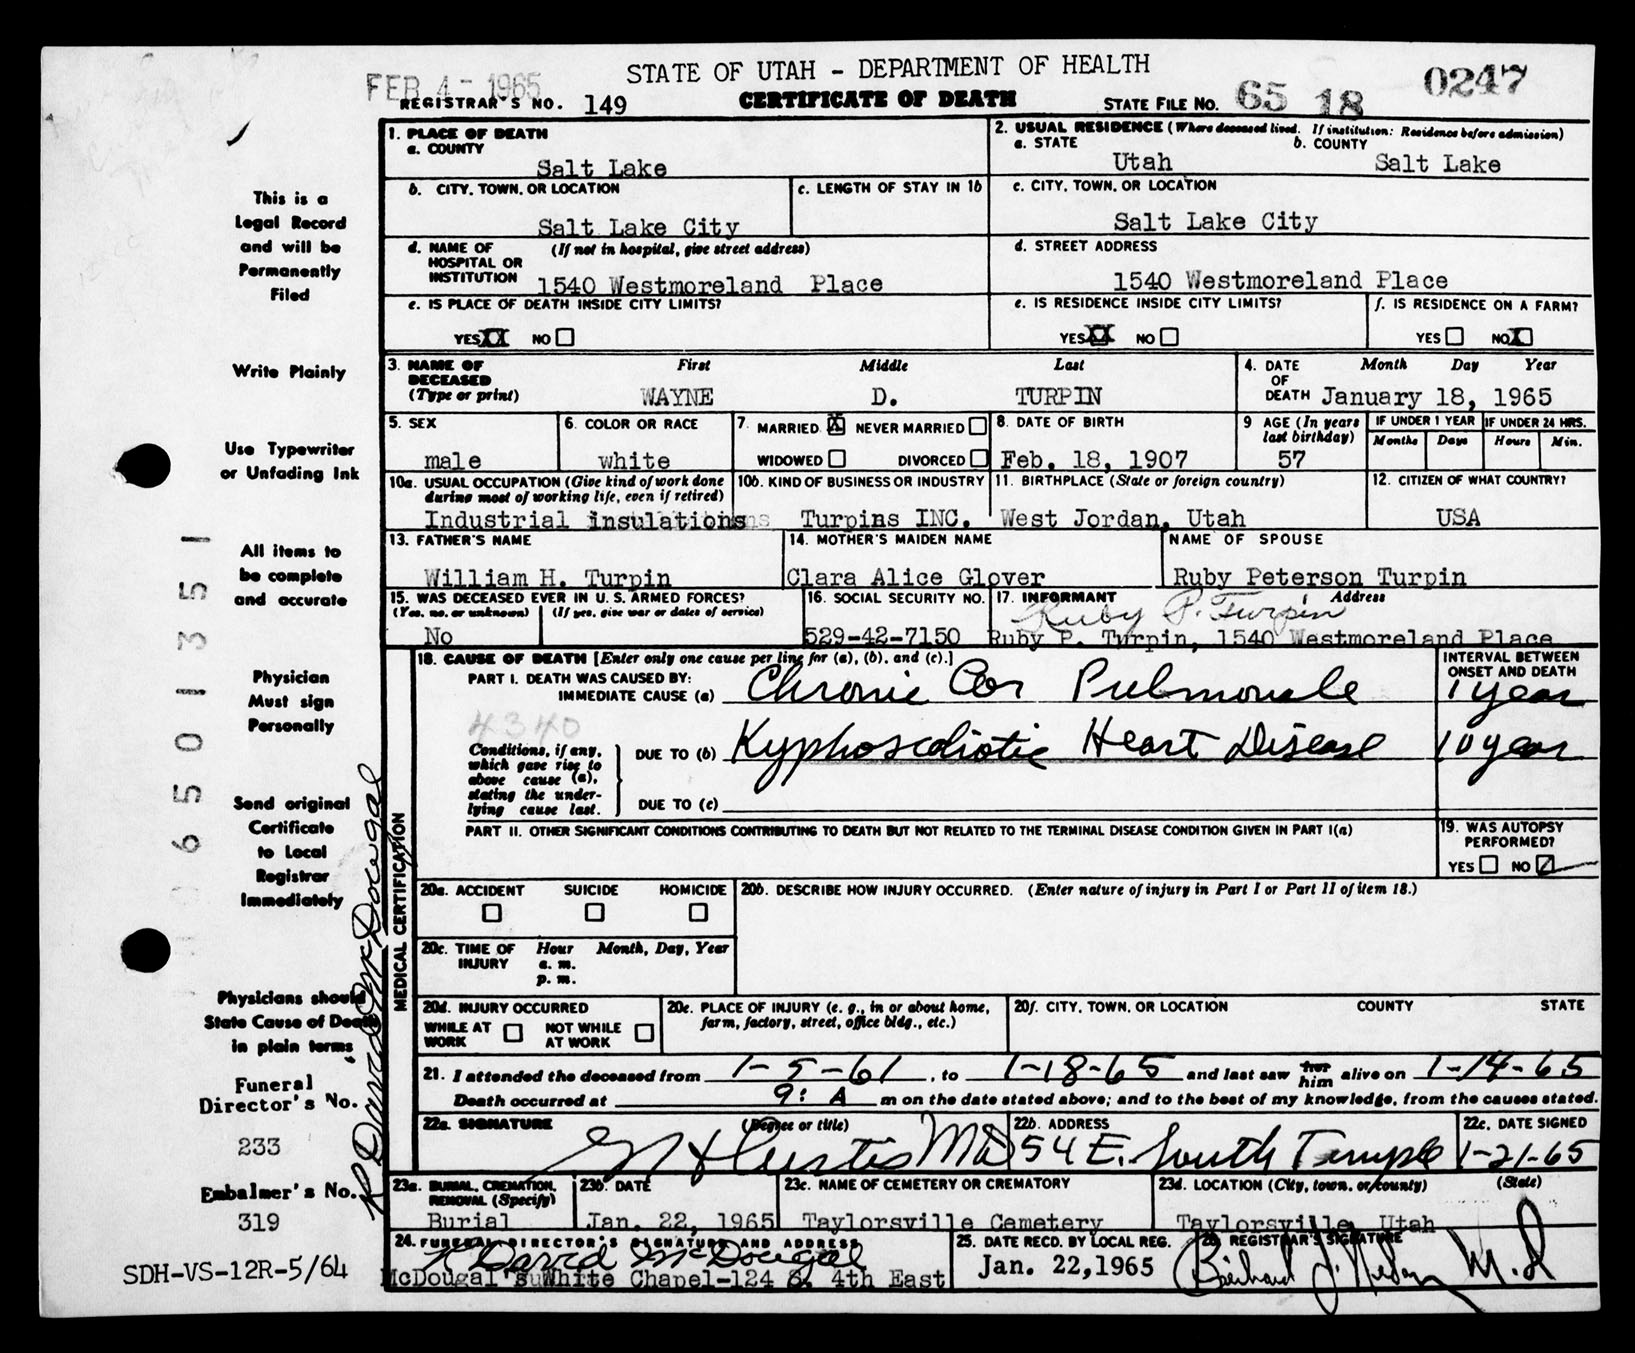 FEB 4- 1965
STATE OF UTAH - DEPARTMENT OF HEALTH
REGISTRAR'S NO. 149 CERTIFICATE OF DEATH STATE FILE NO. 65 18 0247
This is a
Legal Record
and will be
Permanently
Filed
Write Plainly
Use Typewriter
or Unfading Ink
All items to
be complete
and accurate
Physician
Must sign
Personally
Send original
Certificate
to Local
Registrar
Immediately
Physicians should
State Cause of Death
in plain terms
Funeral
Director's No.
233
Embalmer's No.
319
SDH-VS-12R-5/64
06501351
R David McDougal
1. PLACE OF DEATH
a. COUNTY
Salt Lake
2. USUAL RESIDENCE (Where deceased lived. If institution: Residence before admission)
a. STATE b. COUNTY
Utah Salt Lake
b. CITY, TOWN, OR LOCATION c. LENGTH OF STAY IN 1b
Salt Lake City
c. CITY, TOWN, OR LOCATION
Salt Lake City
d. NAME OF HOSPITAL OR INSTITUTION (If not in hospital, give street address)
1540 Westmoreland Place
d. STREET ADDRESS
1540 Westmoreland Place
e. IS PLACE OF DEATH INSIDE CITY LIMITS?
YES XX NO
e. IS RESIDENCE INSIDE CITY LIMITS?
YES XX NO
f. IS RESIDENCE ON A FARM?
YES NO X
3. NAME OF DECEASED (Type or print) First Middle Last
WAYNE D. TURPIN
4. DATE OF DEATH Month Day Year
January 18, 1965
5. SEX
male
6. COLOR OR RACE
white
7. MARRIED X NEVER MARRIED
WIDOWED DIVORCED
8. DATE OF BIRTH
Feb. 18, 1907
9 AGE (In years last birthday)
57
IF UNDER 1 YEAR IF UNDER 24 HRS.
Months Days Hours Min.
10a. USUAL OCCUPATION (Give kind of work done during most of working life, even if retired)
Industrial insulations
10b. KIND OF BUSINESS OR INDUSTRY
Turpins INC.
11. BIRTHPLACE (State or foreign country)
West Jordan, Utah
12. CITIZEN OF WHAT COUNTRY?
USA
13. FATHER'S NAME
William H. Turpin
14. MOTHER'S MAIDEN NAME
Clara Alice Glover
NAME OF SPOUSE
Ruby Peterson Turpin
15. WAS DECEASED EVER IN U. S. ARMED FORCES?
(Yes, no, or unknown) (If yes, give war or dates of service)
No
16. SOCIAL SECURITY NO.
529-42-7150
17. INFORMANT Address
Ruby P. Turpin
Ruby P. Turpin, 1540 Westmoreland Place
MEDICAL CERTIFICATION
18. CAUSE OF DEATH [Enter only one cause per line for (a), (b), and (c).]
INTERVAL BETWEEN ONSET AND DEATH
PART I. DEATH WAS CAUSED BY:
IMMEDIATE CAUSE (a) Chronic Cor Pulmonale 1 year
4340
Conditions, if any, which gave rise to above cause (a), stating the underlying cause last.
DUE TO (b) Kyphoscoliotic Heart Disease 10 year
DUE TO (c)
PART II. OTHER SIGNIFICANT CONDITIONS CONTRIBUTING TO DEATH BUT NOT RELATED TO THE TERMINAL DISEASE CONDITION GIVEN IN PART I(a)
19. WAS AUTOPSY PERFORMED?
YES NO
20a. ACCIDENT SUICIDE HOMICIDE
20b. DESCRIBE HOW INJURY OCCURRED. (Enter nature of injury in Part I or Part II of item 18.)
20c. TIME OF INJURY Hour Month, Day, Year
a. m.
p. m.
20d. INJURY OCCURRED
WHILE AT WORK NOT WHILE AT WORK
20e. PLACE OF INJURY (e. g., in or about home, farm, factory, street, office bldg., etc.)
20f. CITY, TOWN, OR LOCATION COUNTY STATE
21. I attended the deceased from 1-5-61, to 1-18-65 and last saw her him alive on 1-14-65
Death occurred at 9: A m on the date stated above; and to the best of my knowledge, from the causes stated.
22a. SIGNATURE (Degree or title)
Curtis MD
22b. ADDRESS
54 E. South Temple
22c. DATE SIGNED
1-21-65
23a. BURIAL, CREMATION, REMOVAL (Specify)
Burial
23b. DATE
Jan. 22, 1965
23c. NAME OF CEMETERY OR CREMATORY
Taylorsville Cemetery
23d. LOCATION (City, town, or county) (State)
Taylorsville, Utah
24. FUNERAL DIRECTOR'S SIGNATURE AND ADDRESS
R David McDougal
McDougal's White Chapel-124 S. 4th East
25. DATE RECD. BY LOCAL REG.
Jan. 22, 1965
26. REGISTRAR'S SIGNATURE
M.D